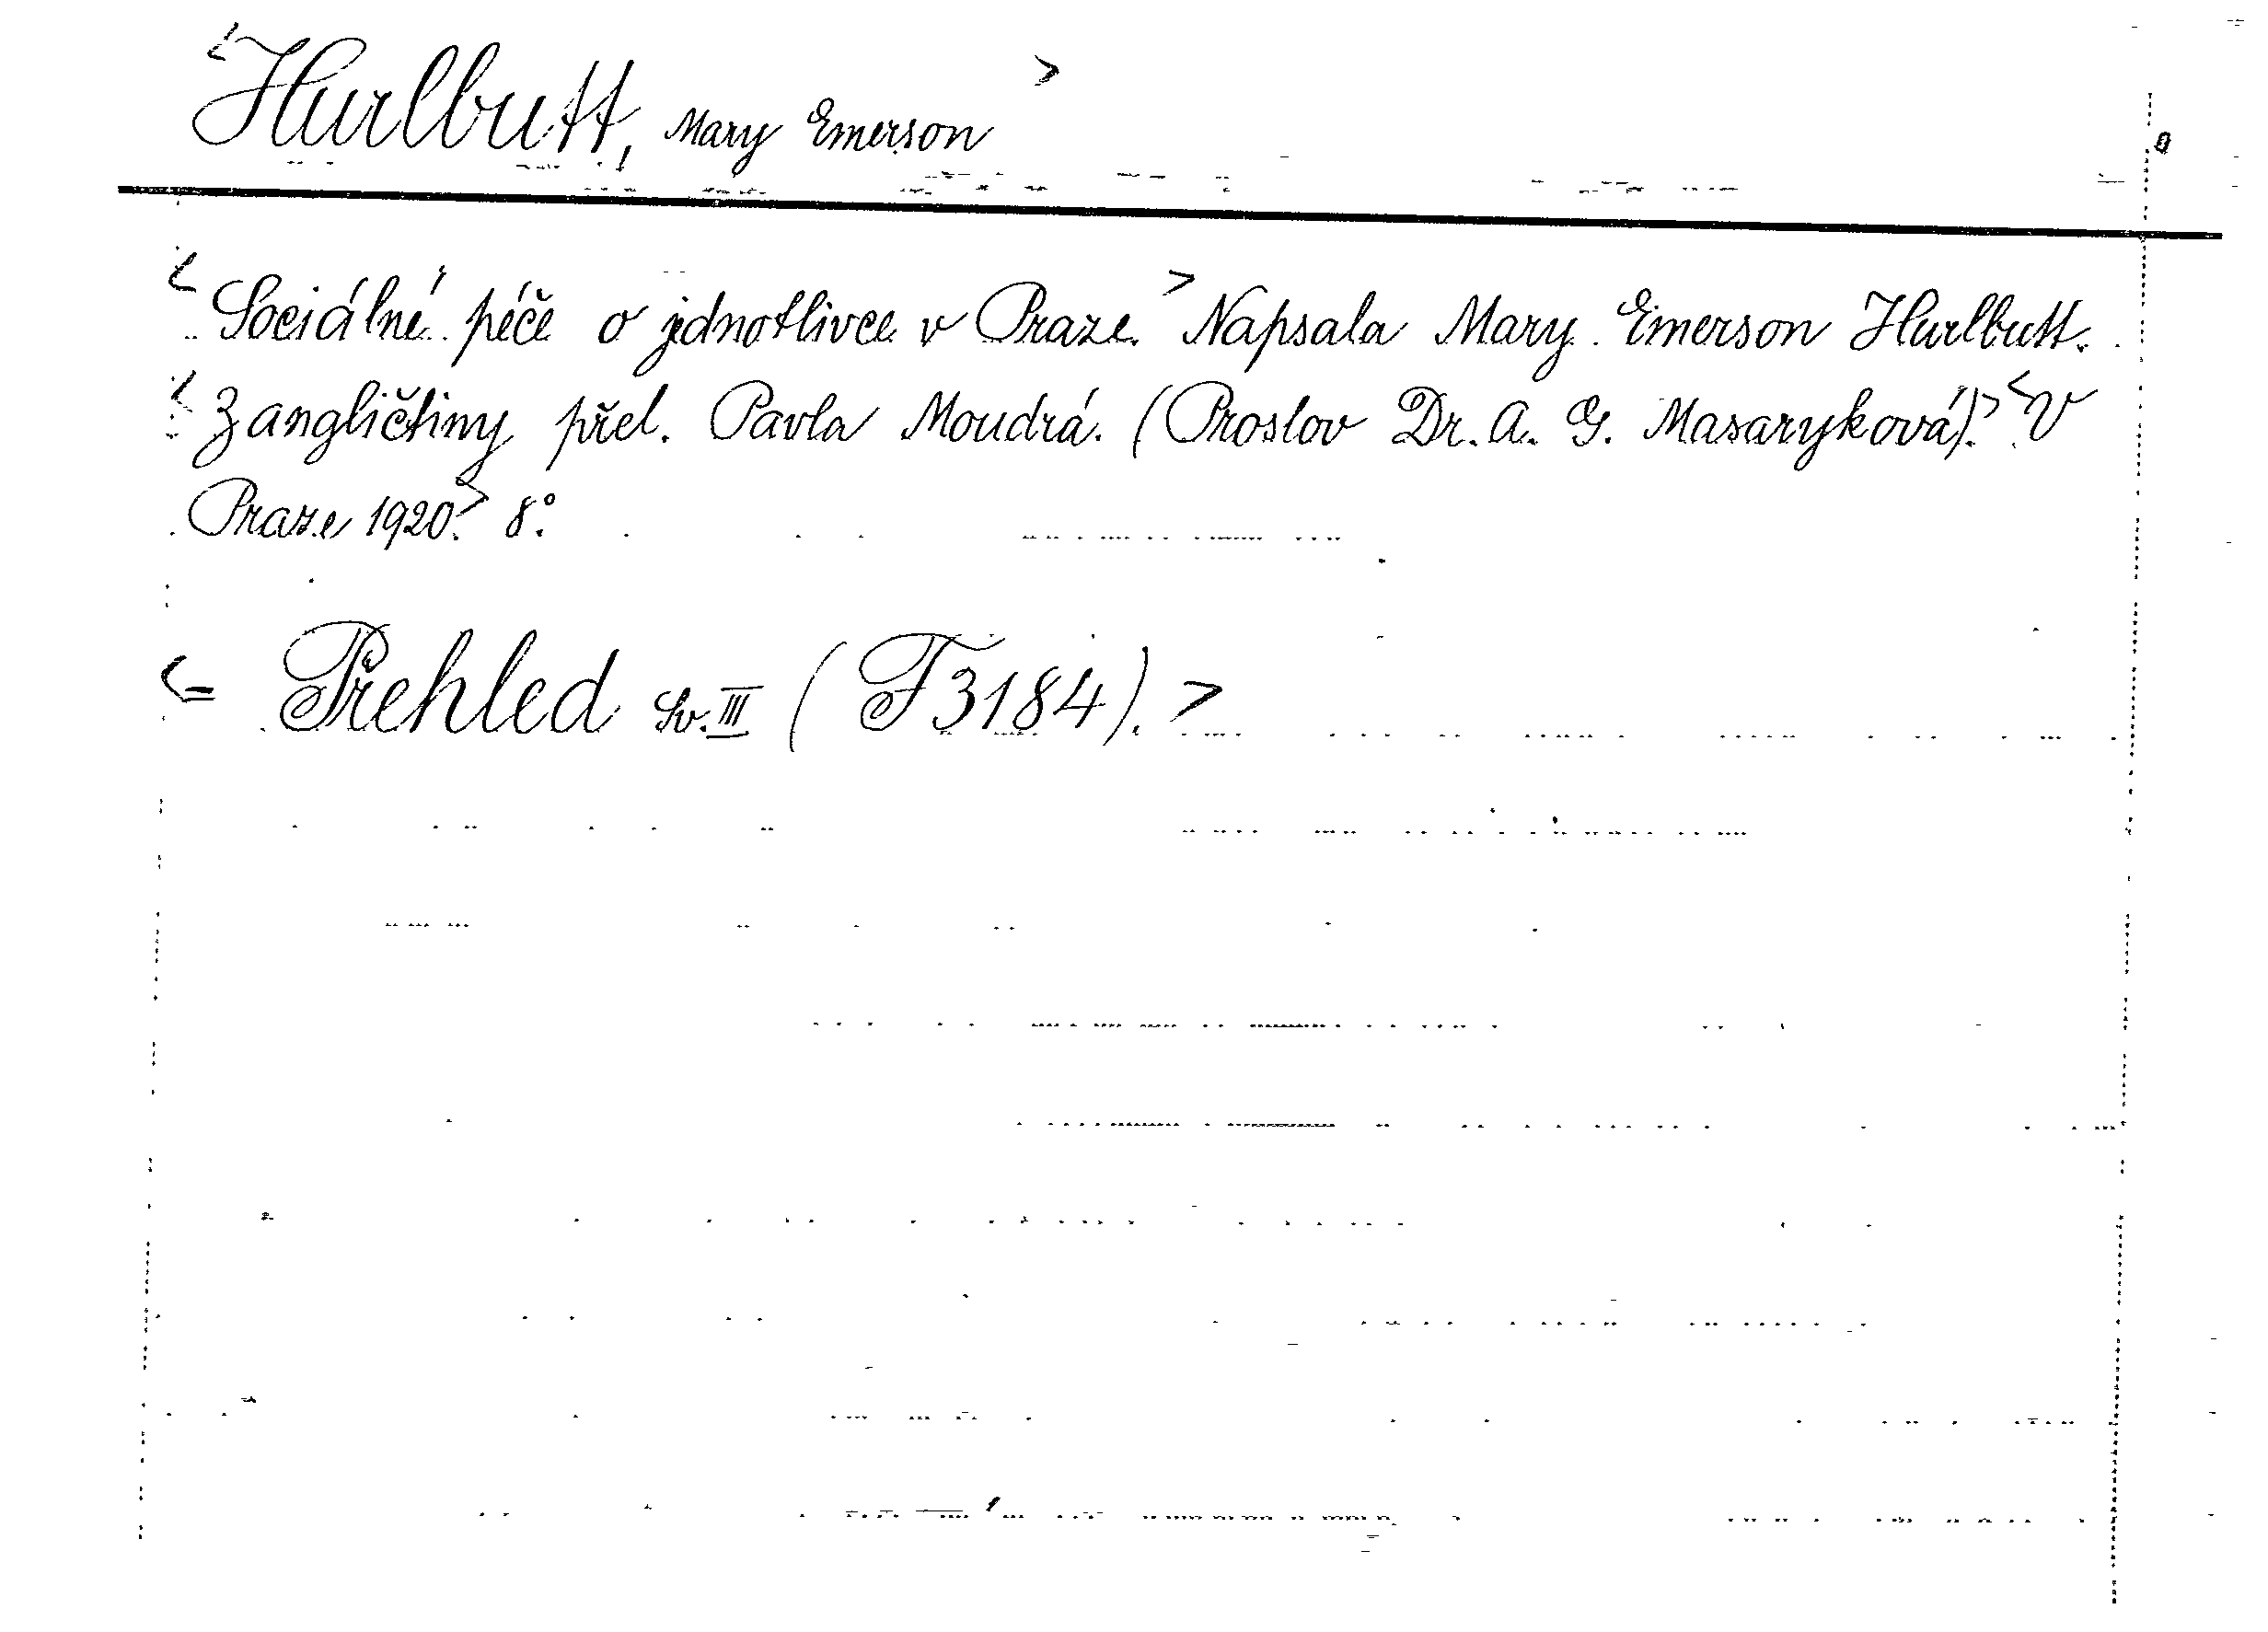 <Hurlbutt, Mary Emerson >
<Sociálné péče o jednotlivce v Praze.> Napsala Mary Emerson Hurlbutt.
<Z angličtiny přel. Pavla Moudrá. (Proslov Dr. A. G. Masaryková).> <V
Praze 1920.> 8°.
<= Přehled Sv. III (F 3184).>